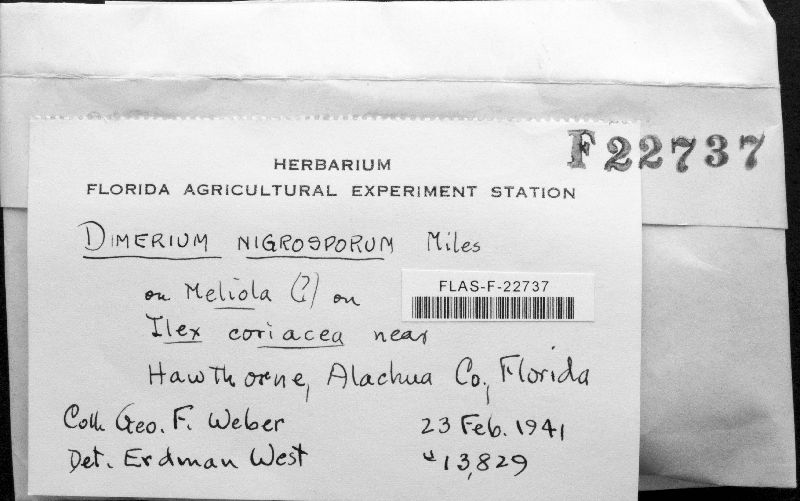 F22737
HERBARIUM
FLORIDA AGRICULTURAL EXPERIMENT STATION
DIMERIUM NIGROSPORUM Miles
on Meliola (?) on
FLAS-F-22737
Ilex coriacea near
Hawthorne, Alachua Co., Florida
Coll. Geo. F. Weber 23 Feb. 1941
Det. Erdman West #13,829